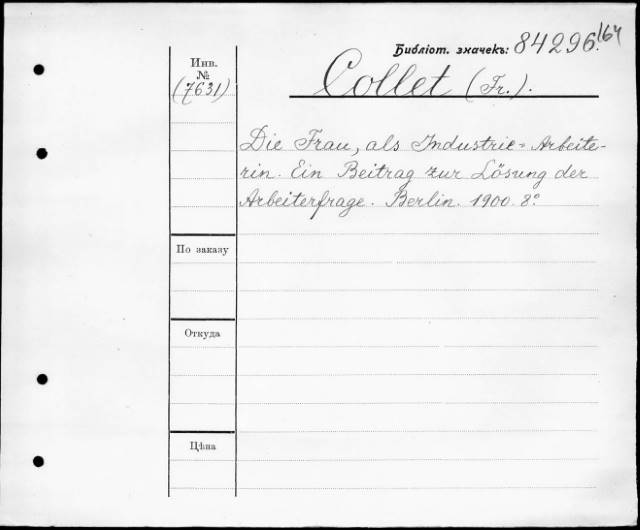 Библіот. значекъ: 84296.164
Инв. №
(7631)
Collet (Fr.).
Die Frau, als Industrie-Arbeite-
rin. Ein Beitrag zur Lösung der
Arbeiterfrage. Berlin. 1900. 8°.
По заказу
Откуда
Цѣна